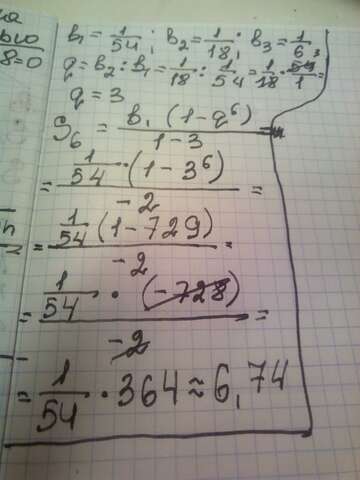 b₁ = 1/54; b₂ = 1/18; b₃ = 1/6;
8=0
q = b₂ : b₁ = 1/18 : 1/54 = 1/18 · 54/1 =
q = 3
S₆ = b₁ (1 - q⁶) / 1 - 3 =
= 1/54 · (1 - 3⁶) / -2 =
= 1/54 (1 - 729) / -2 =
= 1/54 · (-728) / -2 =
= 1/54 · 364 ≈ 6,74